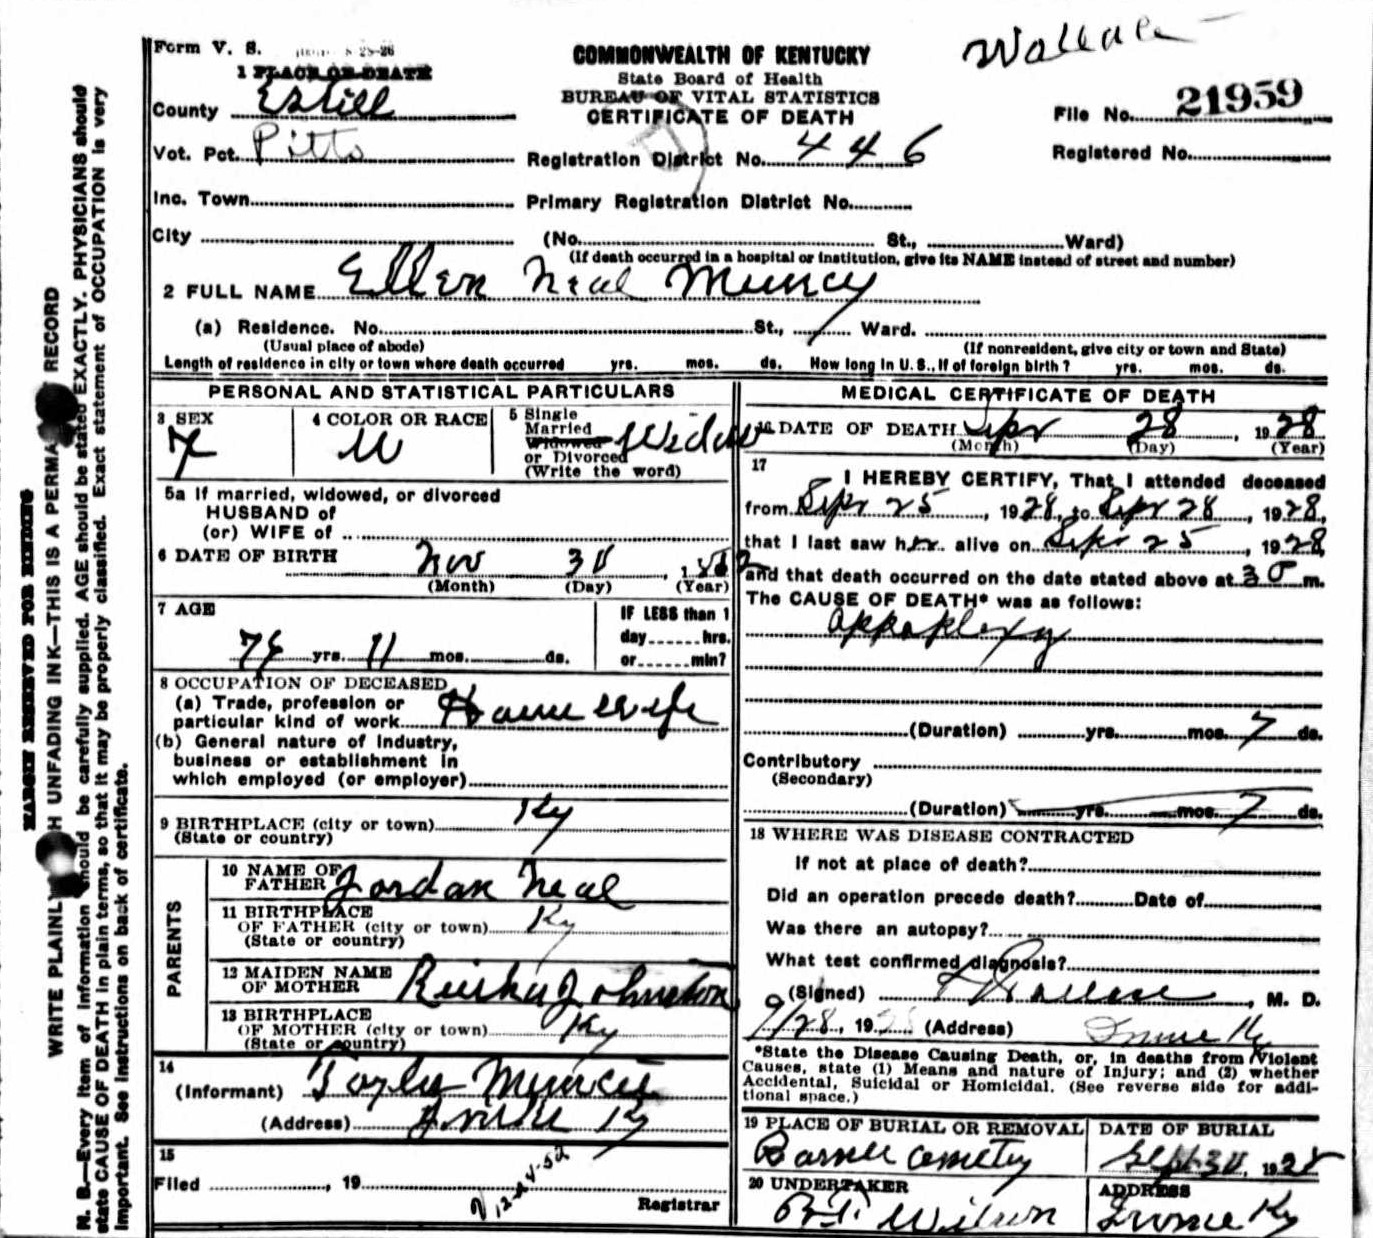 Wallace
Form V. S.
1 PLACE OF DEATH
COMMONWEALTH OF KENTUCKY
State Board of Health
BUREAU OF VITAL STATISTICS
CERTIFICATE OF DEATH
File No. 21959
County Estill
Vot. Pct. Pitts
Registration District No. 446
Registered No.
Inc. Town
Primary Registration District No.
City (No. St., Ward)
(If death occurred in a hospital or institution, give its NAME instead of street and number)
2 FULL NAME Ellen Neal Muncy
(a) Residence. No. St., Ward.
(Usual place of abode)
(If nonresident, give city or town and State)
Length of residence in city or town where death occurred yrs. mos. ds. How long in U. S., if of foreign birth? yrs. mos. ds.
PERSONAL AND STATISTICAL PARTICULARS
3 SEX
F
4 COLOR OR RACE
W
5 Single
Married
Widowed
or Divorced
(Write the word)
Widow
5a If married, widowed, or divorced
HUSBAND of
(or) WIFE of
6 DATE OF BIRTH Nov 30
(Month) (Day) (Year)
7 AGE
yrs. 11 mos. ds.
IF LESS than 1
day hrs.
or min?
8 OCCUPATION OF DECEASED
(a) Trade, profession or
particular kind of work House wife
(b) General nature of industry,
business or establishment in
which employed (or employer)
9 BIRTHPLACE (city or town) Ky
(State or country)
PARENTS
10 NAME OF
FATHER Jordan Neal
11 BIRTHPLACE
OF FATHER (city or town) Ky
(State or country)
12 MAIDEN NAME
OF MOTHER Johnston
13 BIRTHPLACE
OF MOTHER (city or town) Ky
(State or country)
14
(Informant) Muncie
(Address) Irvine Ky
15
Filed , 19
Registrar
MEDICAL CERTIFICATE OF DEATH
16 DATE OF DEATH Sept 28, 1928
(Month) (Day) (Year)
17
I HEREBY CERTIFY, That I attended deceased
from Sept 25, 1928, to Sept 28, 1928,
that I last saw her alive on Sept 25, 1928,
and that death occurred on the date stated above at m.
The CAUSE OF DEATH* was as follows:
Appoplexy
(Duration) yrs. mos. 7 ds.
Contributory
(Secondary)
(Duration) yrs. mos. 7 ds.
18 WHERE WAS DISEASE CONTRACTED
If not at place of death?
Did an operation precede death? Date of
Was there an autopsy?
What test confirmed diagnosis?
(Signed) Wallace, M. D.
9/28, 1928 (Address) Irvine Ky
*State the Disease Causing Death, or, in deaths from Violent
Causes, state (1) Means and nature of Injury; and (2) whether
Accidental, Suicidal or Homicidal. (See reverse side for addi-
tional space.)
19 PLACE OF BURIAL OR REMOVAL
DATE OF BURIAL
cemetry
Sept 30, 1928
20 UNDERTAKER
ADDRESS
Wilson
Irvine Ky
MARGIN RESERVED FOR BINDING
WRITE PLAINLY H UNFADING INK—THIS IS A PERMA RECORD
N. B.—Every item of information should be carefully supplied. AGE should be stated EXACTLY. PHYSICIANS should
state CAUSE OF DEATH in plain terms, so that it may be properly classified. Exact statement of OCCUPATION is very
important. See instructions on back of certificate.